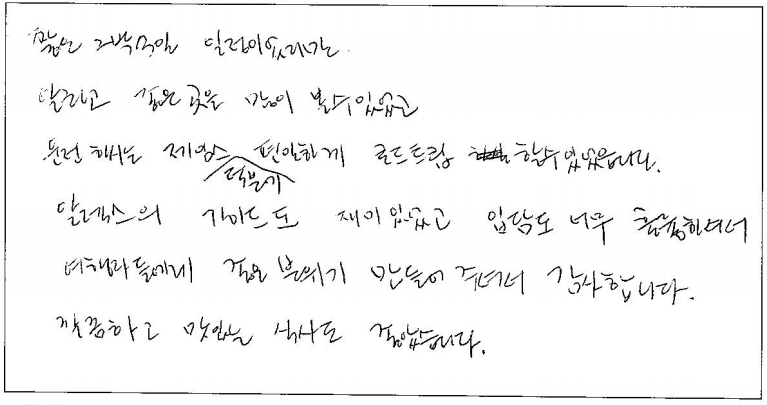 짧은 2박3일 일정이었지만
알차고 좋은 곳을 많이 볼수있었고
운전하시는 제임스 덕분에 편안하게 로드트립 할수있었습니다.
알렉스의 가이드도 재미있었고 입담도 너무 훌륭하셔서
여행자들에게 좋은 분위기 만들어주셔서 감사합니다.
깔끔하고 맛있는 식사도 좋았습니다.